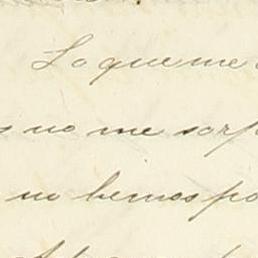 Lo que me
no me sorp
no hemos po